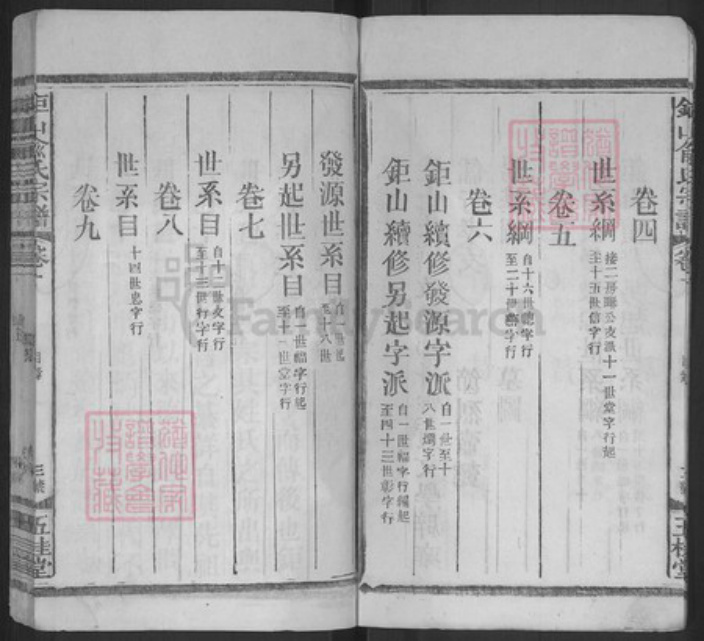 卷四
世系綱 接二房 公支派十一世堂字行起 至十五世信字行
卷五
世系綱 自十六世 字行 至二十世 字行
卷六
鉅山續修發源字派 自一世至十八世 字行
鉅山續修另起字派 自一世福字行 起 至四十三世彰字行
發源世系目 至十八世
另起世系目 自一世福字行起 至十一世堂字行
卷七
世系目 自十二世文字行 至十三世行字行
卷八
世系目 十四世忠字行
卷九
鉅山俞氏宗譜 卷一
五桂堂
FamilySearch